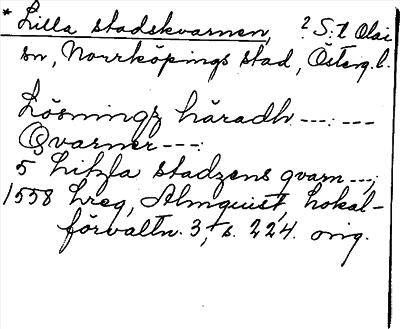 * Lilla stadskvarnen, ? S:t Olai
sn, Norrköpings stad, Österg. l.
Lösningz häradh ---: ---
Qvarner ---:
5 Litzla stadzens qvarn ---;
1558 Lreg, Almquist, Lokal-
förvaltn. 3, s. 224. orig.